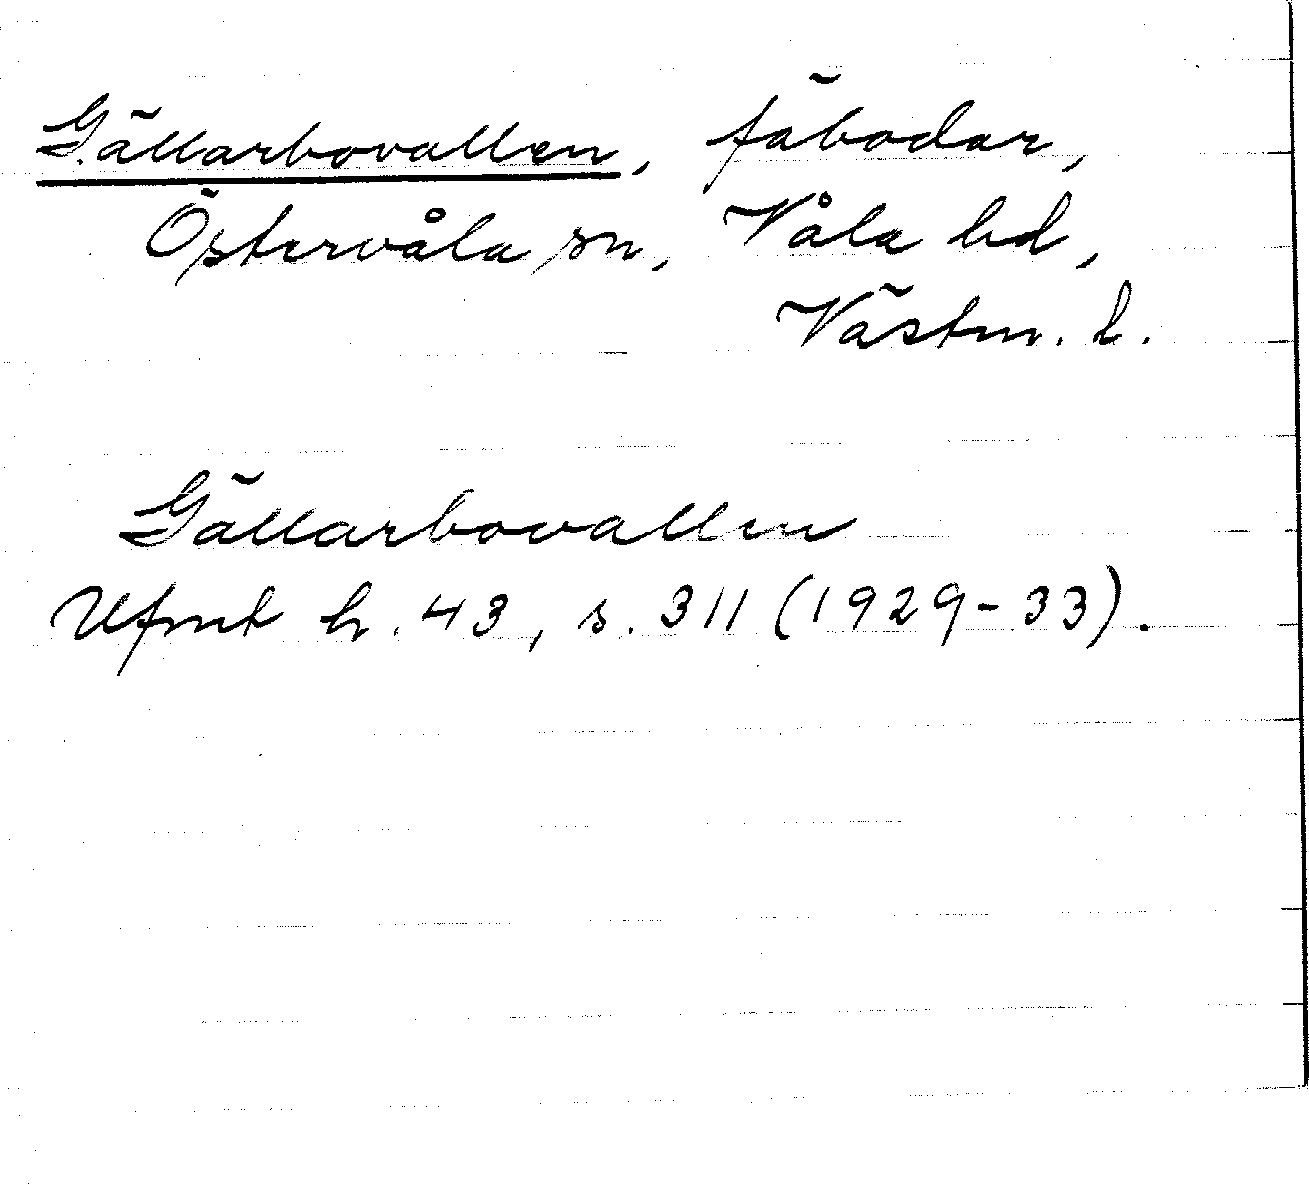 Gällarbovallen, fäbodar,
Östervåla sn, Våla hd,
Västm. l.
Gällarbovallen
Ufmt h. 43, s. 311 (1929-33).